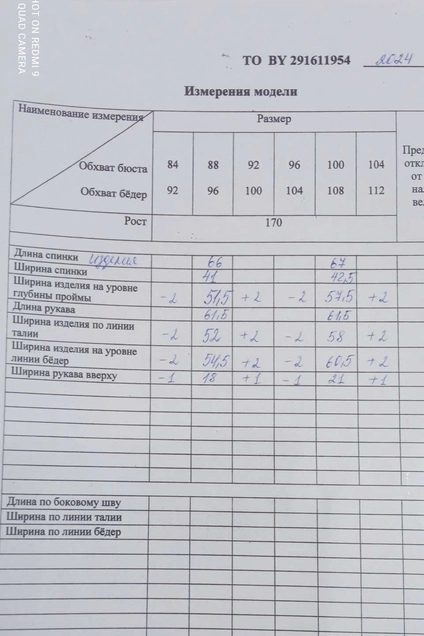 SHOT ON REDMI 9
QUAD CAMERA
ТО BY 291611954 2024
Измерения модели
Наименование измерения
Размер
Обхват бюста 84 88 92 96 100 104
Обхват бёдер 92 96 100 104 108 112
Рост 170
Длина спинки изделия 66 67
Ширина спинки 41 42,5
Ширина изделия на уровне
глубины проймы -2 51,5 +2 -2 57,5 +2
Длина рукава 61,5 61,5
Ширина изделия по линии
талии -2 52 +2 -2 58 +2
Ширина изделия на уровне
линии бёдер -2 54,5 +2 -2 60,5 +2
Ширина рукава вверху -1 18 +1 -1 21 +1
Длина по боковому шву
Ширина по линии талии
Ширина по линии бёдер